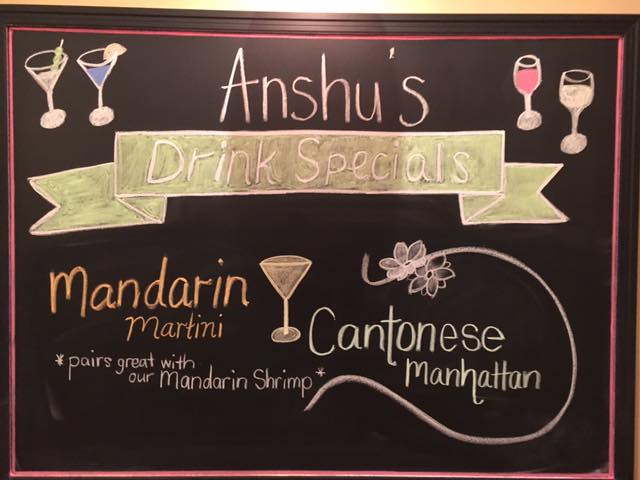 Anshu's
Drink Specials
Mandarin
Martini
*pairs great with
our Mandarin Shrimp*
Cantonese
Manhattan